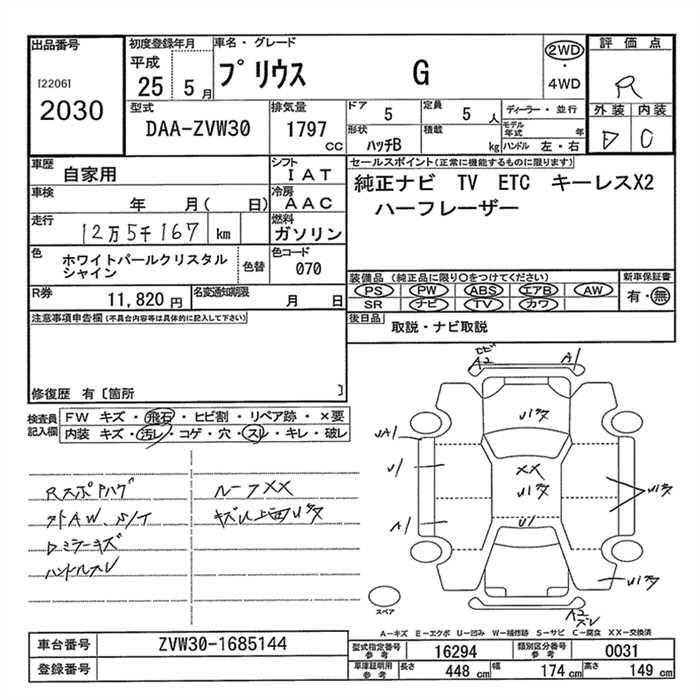 出品番号
[2206]
2030
初度登録年月
平成
25 5月
車名・グレード
プリウス G
2WD
・
4WD
評価点
R
外装 内装
D C
型式
DAA-ZVW30
排気量
1797
CC
ドア
5
定員
5 人
形状
ハッチB
積載
kg
ディーラー・並行
モデル年式 年
ハンドル 左・右
車歴
自家用
シフト
IAT
車検
年 月( 日)
冷房
AAC
走行
12万5千167 km
燃料
ガソリン
色
ホワイトパールクリスタル
シャイン
色替
色コード
070
R券
11,820 円
名変通知期限
月 日
セールスポイント(正常に機能するものに限ります)
純正ナビ TV ETC キーレスX2
ハーフレーザー
装備品 (純正品に限り○をつけてください)
PS PW ABS エアB AW
SR ナビ TV カワ
新車保証書
有・無
後日品
取説・ナビ取説
注意事項申告欄(不具合内容等は具体的に記入して下さい)
修復歴 有〔箇所 〕
検査員
記入欄
FW キズ・飛石・ヒビ割・リペア跡・×要
内装 キズ・汚レ・コゲ・穴・スレ・キレ・破レ
ルーフXX
ハンドルスレ
A2
A1
UA1
U1
A1
XX
U1
スペア
A2
A-キズ E-エクボ U-凹み W-補修跡 S-サビ C-腐食 XX-交換済
車台番号
ZVW30-1685144
登録番号
型式指定番号
参考
16294
類別区分番号
参考
0031
車庫証明用
参考
長さ 448 cm
幅 174 cm
高さ 149 cm